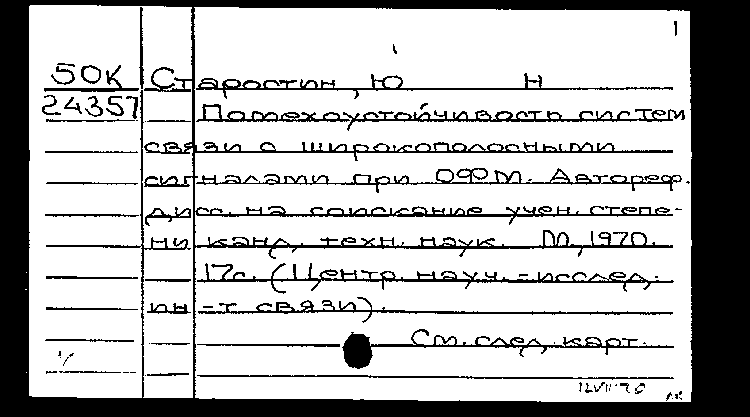 1
50К Старостин, Ю Н
24357 Помехоустойчивость систем
связи с широкополосными
сигналами при ОФМ. Автореф.
дисс. на соискание учен. степе-
ни канд. техн. наук. М., 1970.
17с. (Центр. науч.-исслед.
ин-т связи).
См. след. карт.